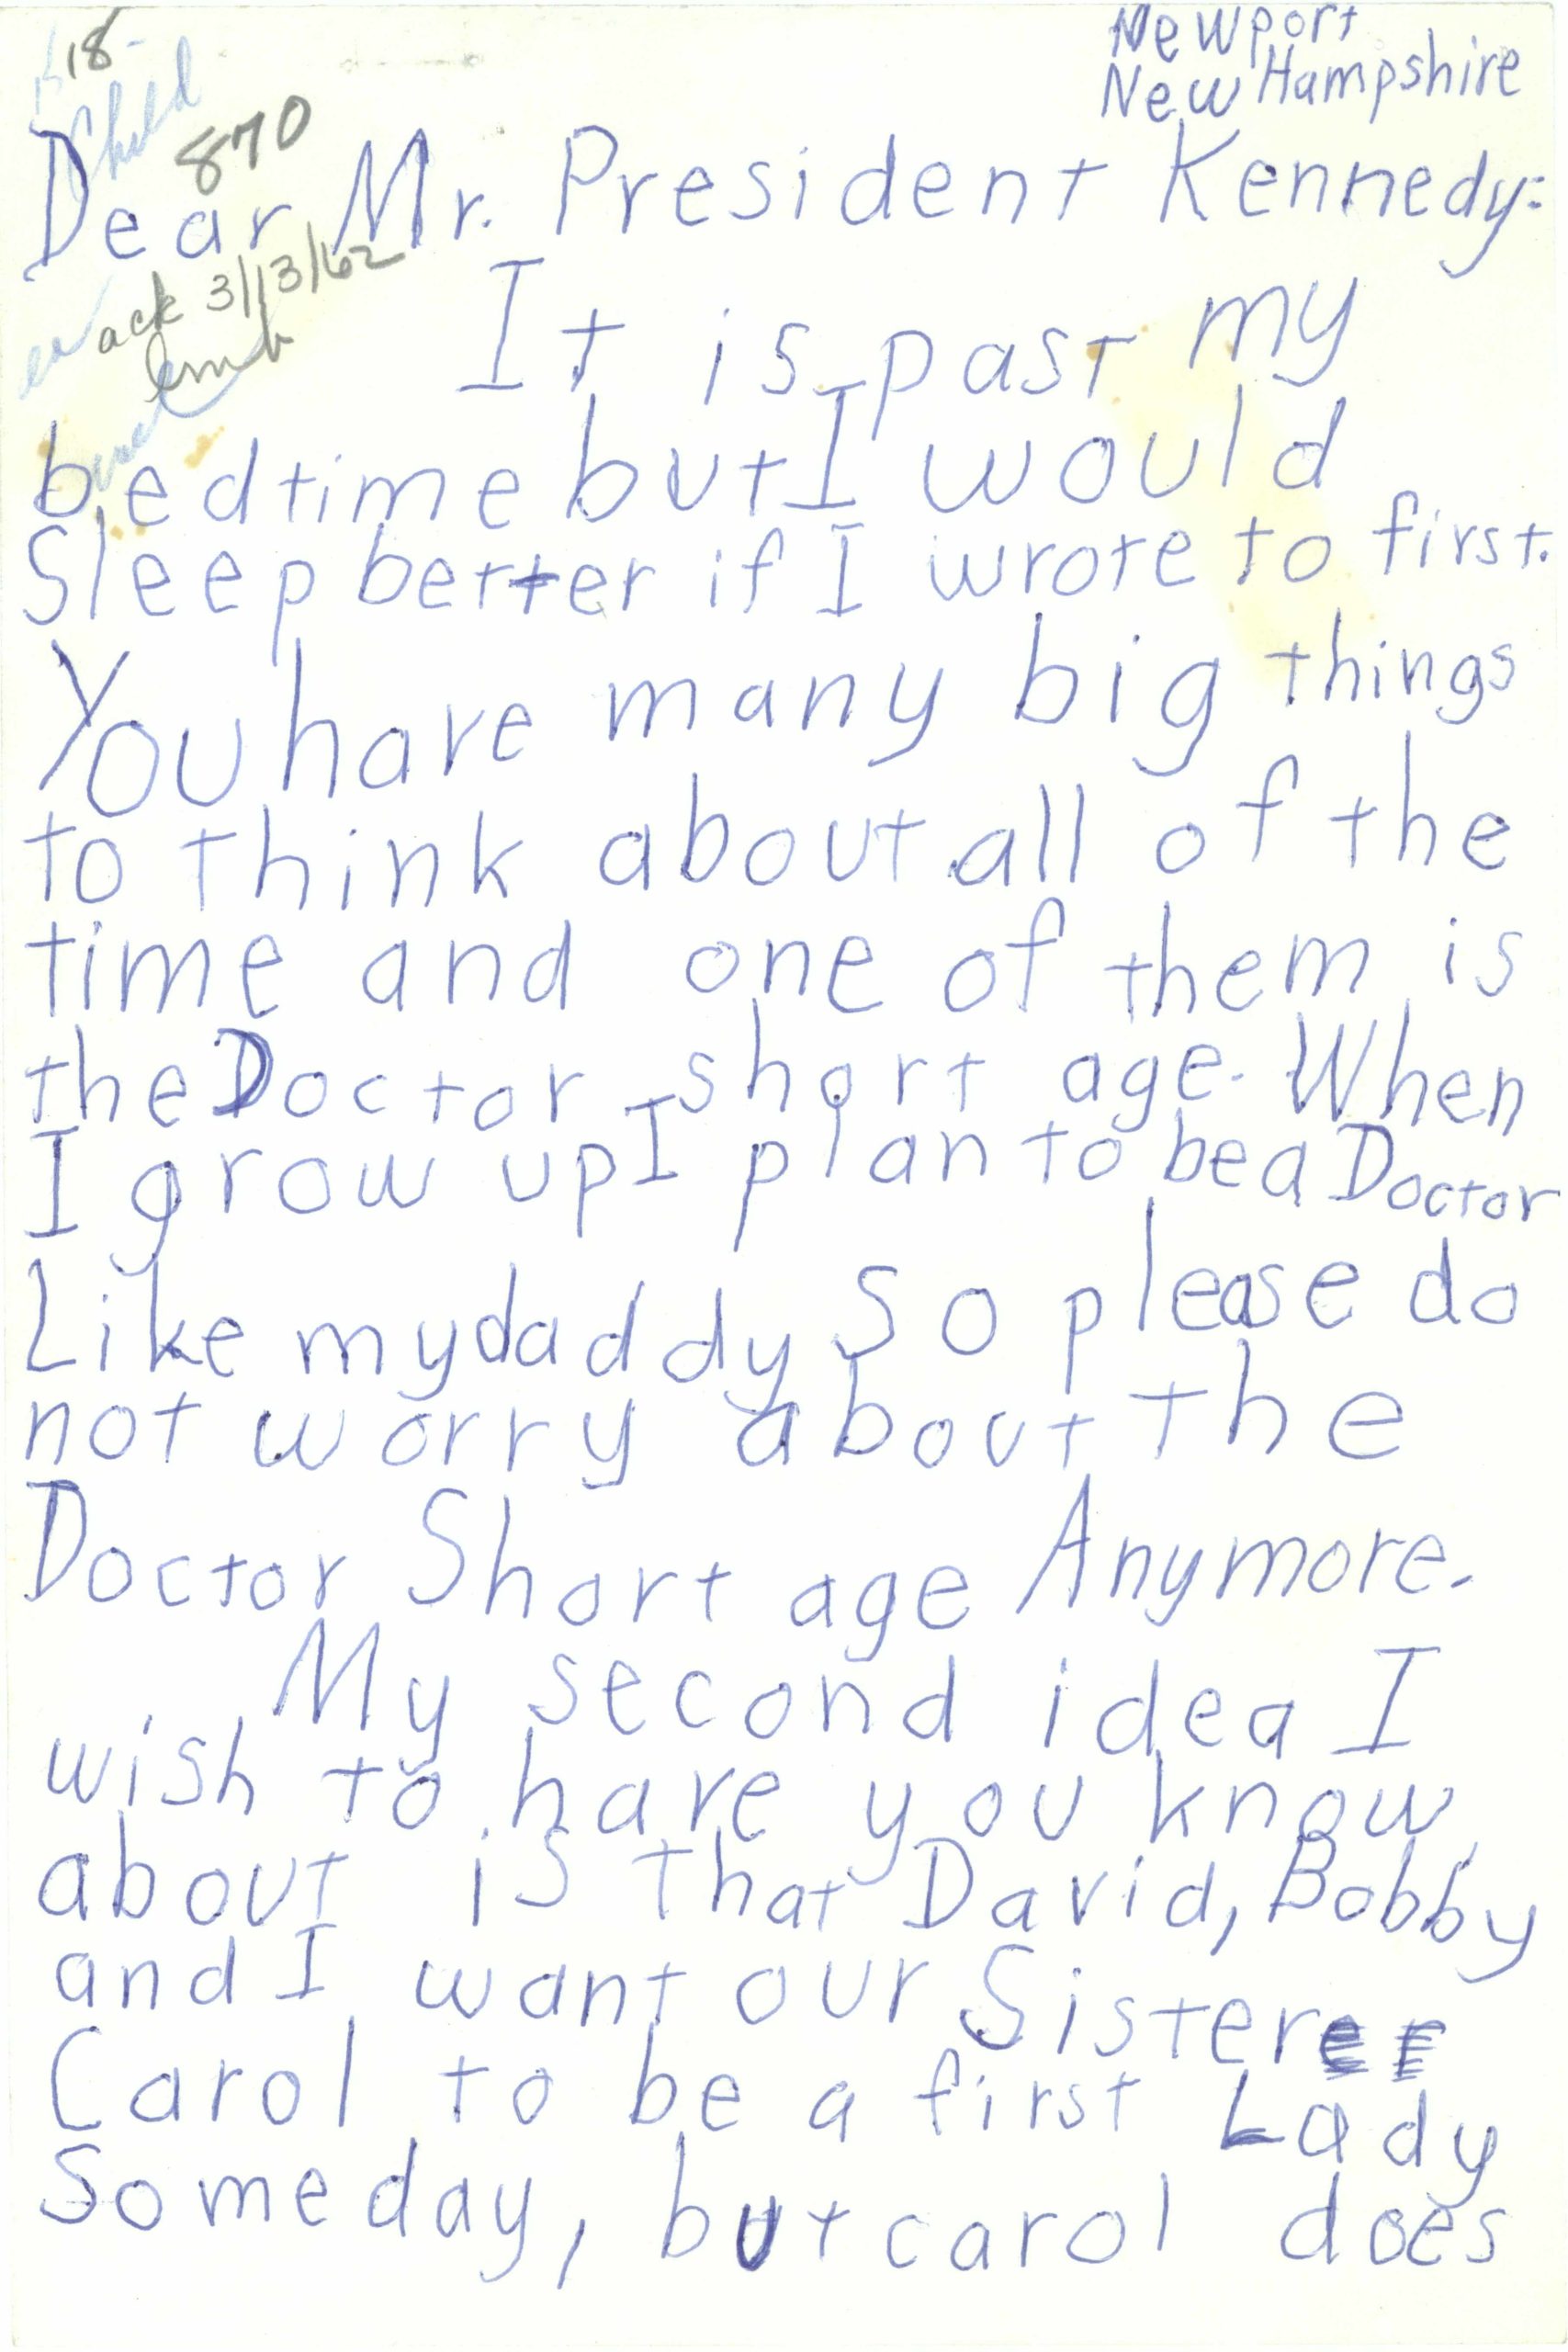 Newport
New Hampshire
18-
Child
870
Dear Mr. President Kennedy:
ack 3/13/62
It is past my
bedtime but I would
Sleep better if I wrote to first.
You have many big things
to think about all of the
time and one of them is
the Doctor short age. When
I grow up I plan to be a Doctor
Like my daddy so please do
not worry about the
Doctor Short age Anymore.
My second idea I
wish to have you know
about is that David, Bobby
and I want our Sister
Carol to be a first Lady
Someday, but carol does